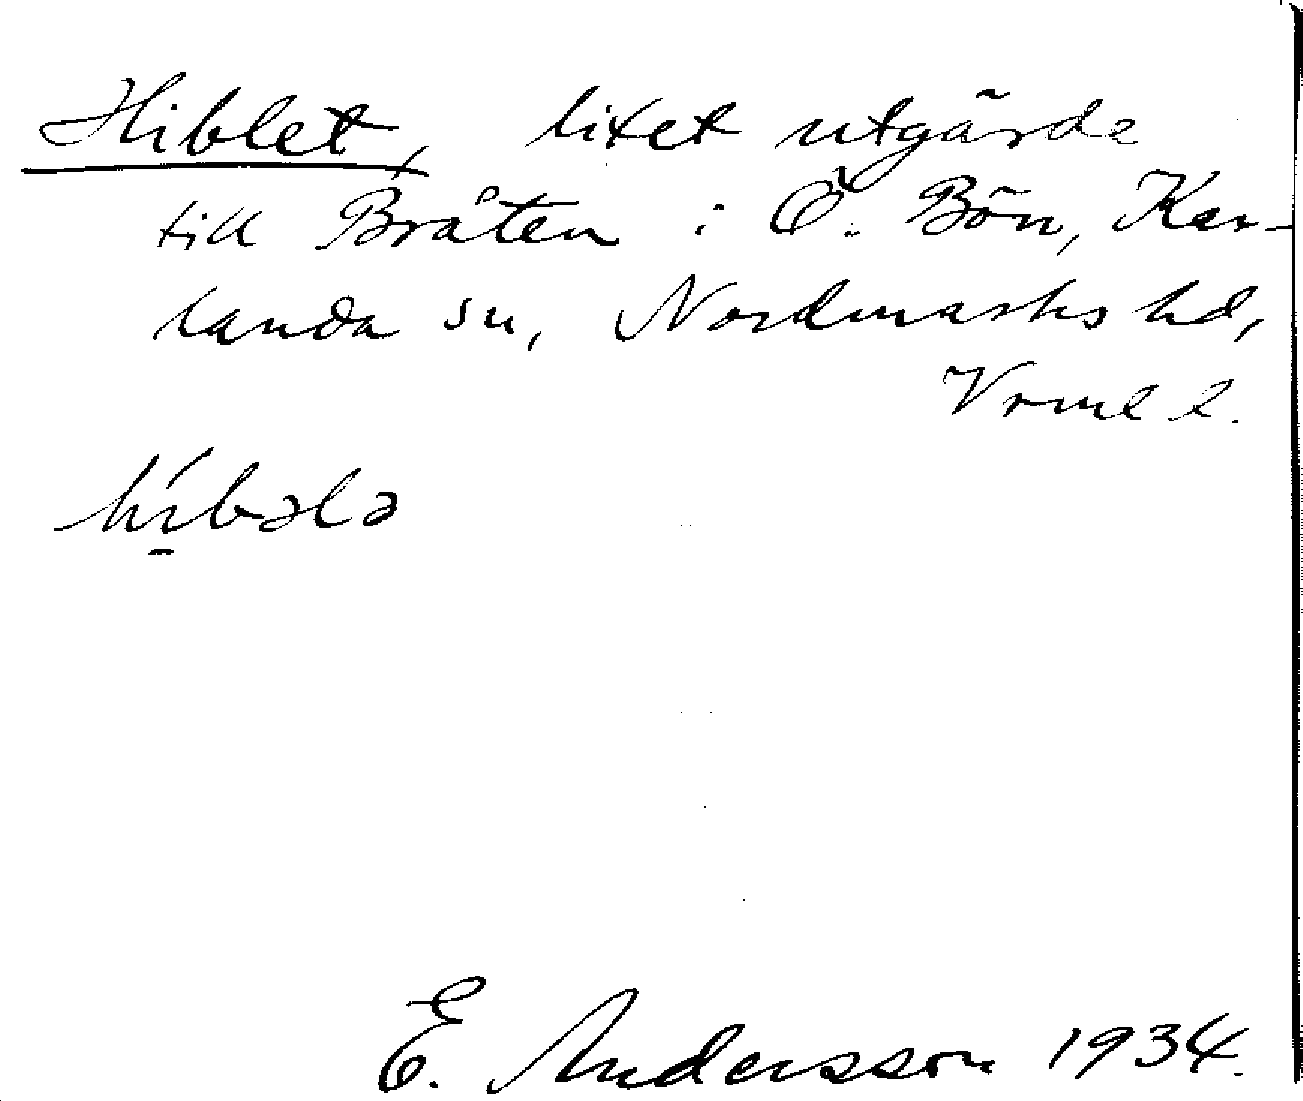 Hiblet, litet utgärde
till Bråten i Ö. Bön, Kar-
landa sn, Nordmarks hd,
Vrml l.
hí̱bələ
E. Andersson 1934.